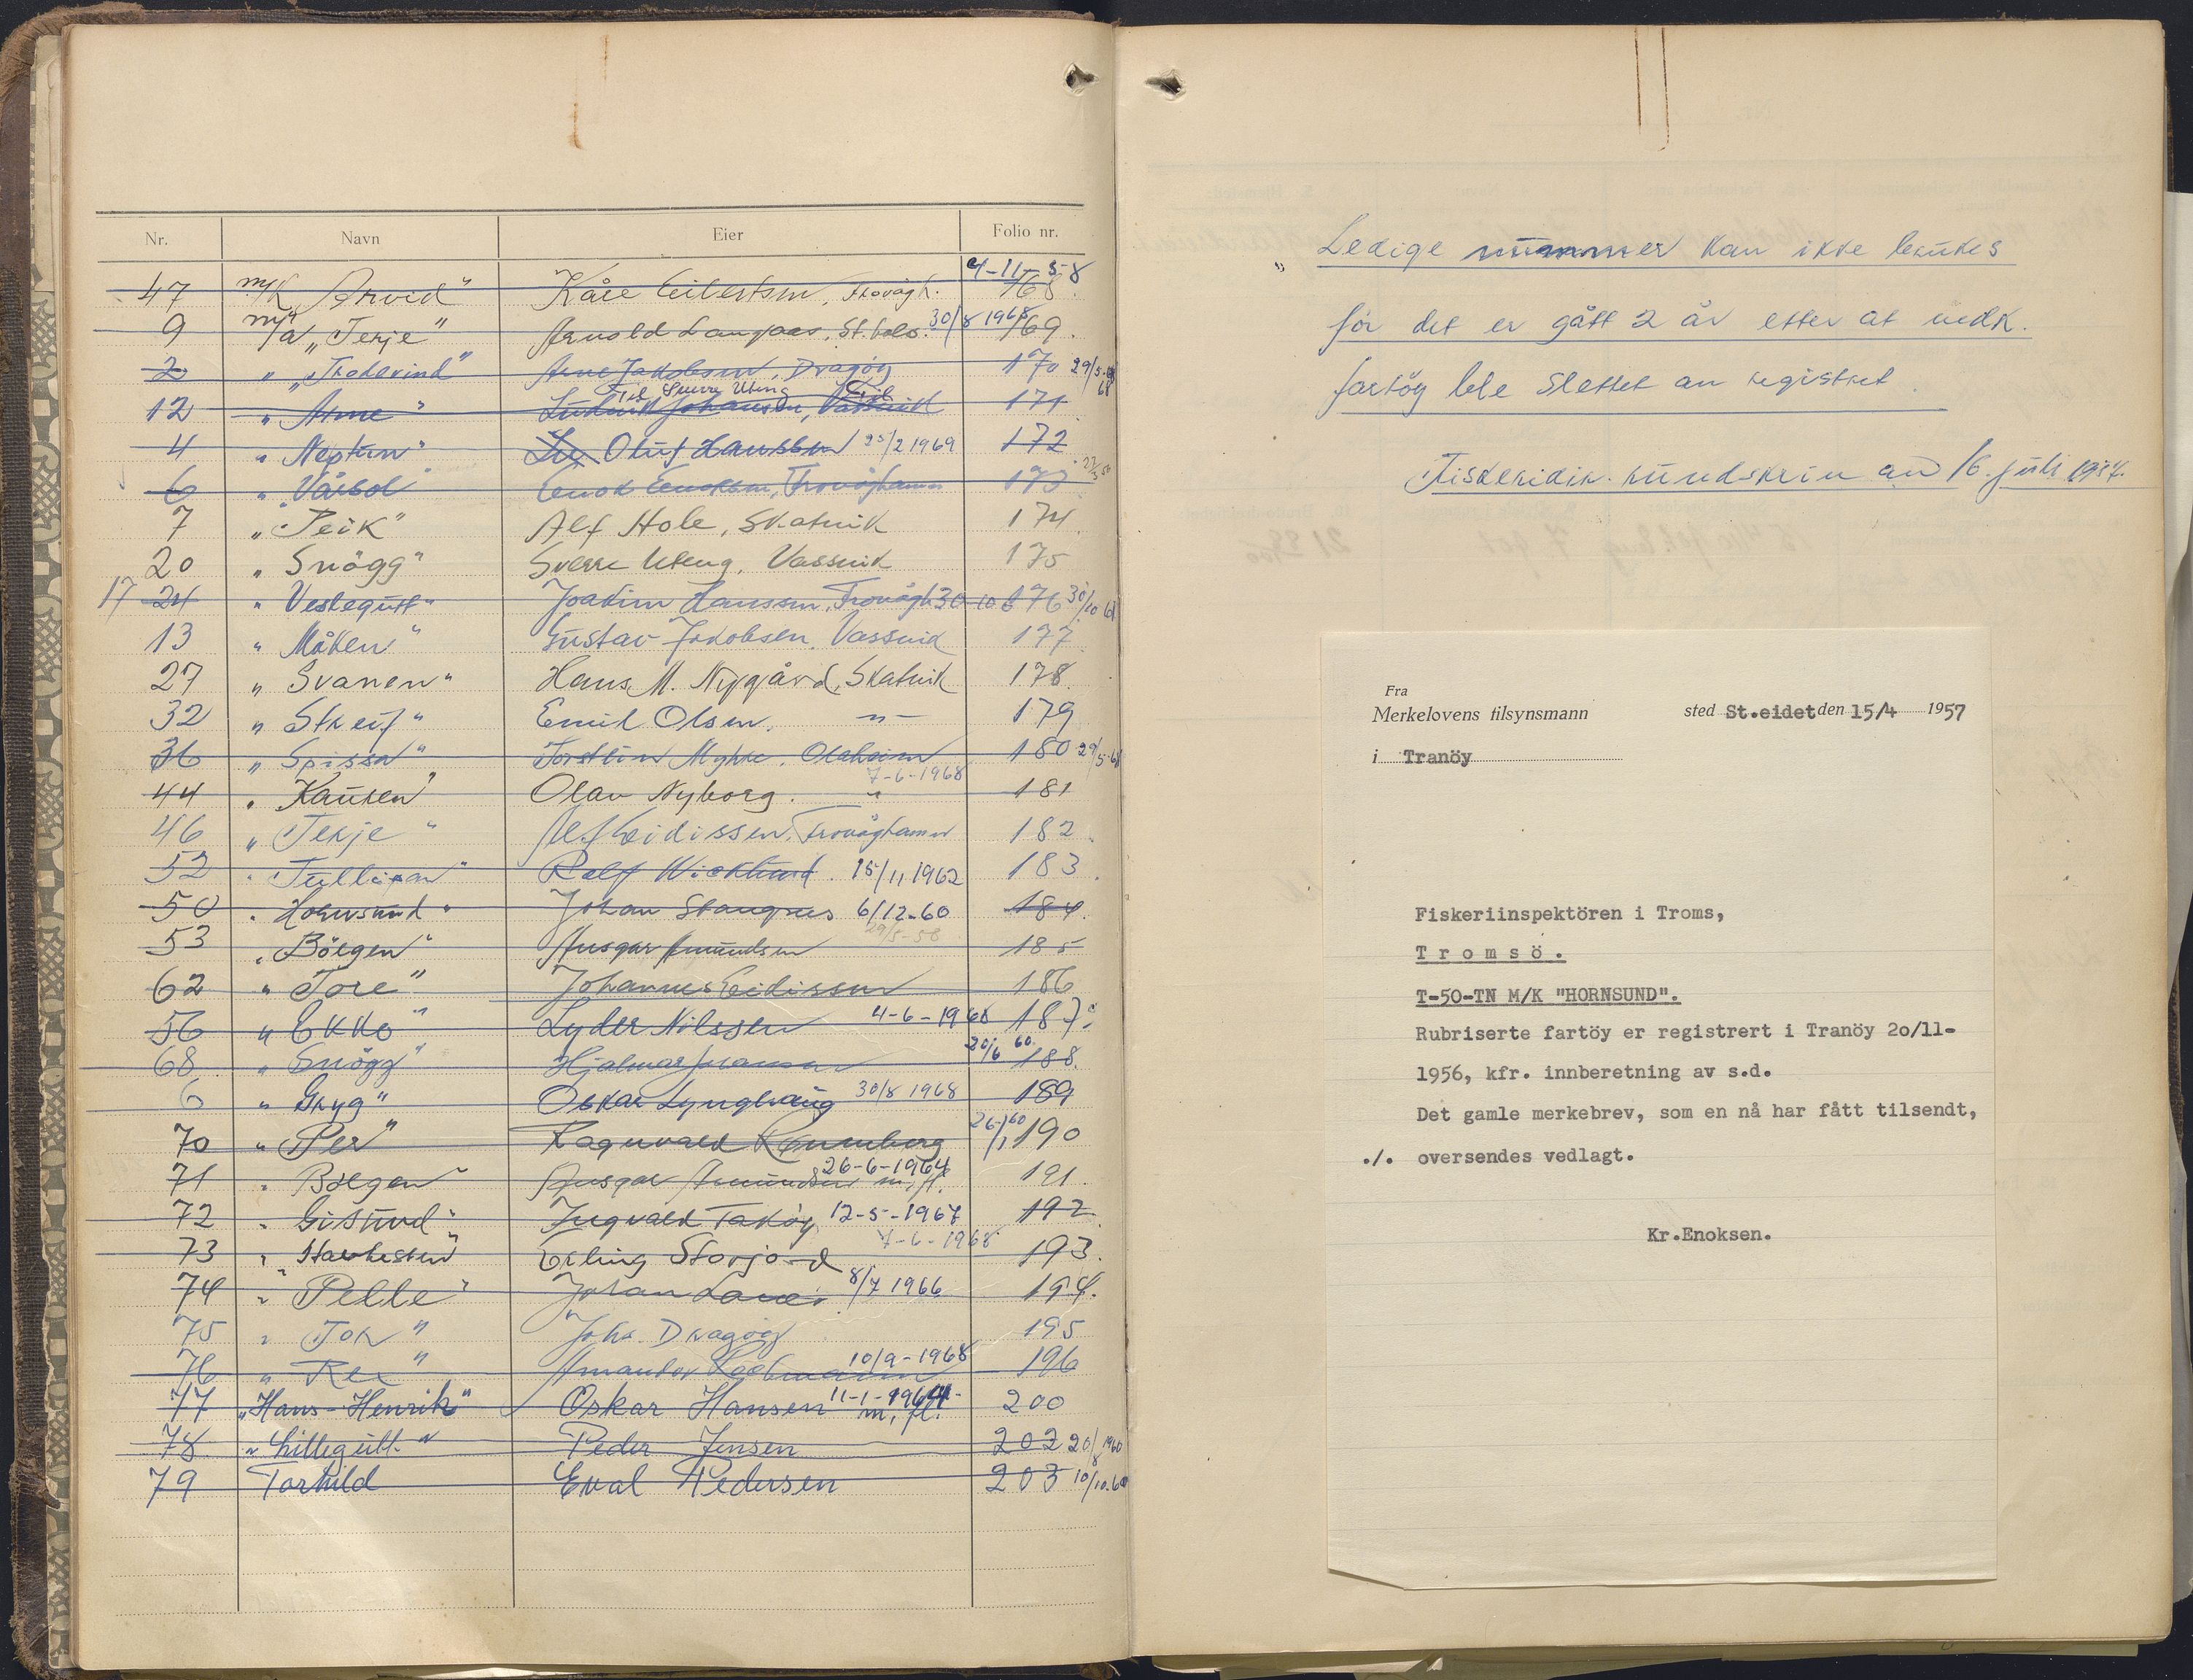 Nr. Navn Eier Folio nr.
47 m/k „Arvid" Kåre Eilertsen, Frovågh. 4-11-58 168.
9 m/a „Terje" Arnold Langaas, St.vols. 30/8 1968 169.
2 " „ Arne Jakobsen, Dragöy 170 29/5-68
12 " Arne " Ludvik Johansen, Vassvik 171
4 " Neptun" Oluf Hanssen 25/2 1969 172
6 " Vårsol" Enok Enoksen, Frovåghamn 173
7 „Peik" Alf Hole, Skatvik 174
20 " Snögg" Sverre Uteng, Vassvik 175
17 24 " Veslegutt" Joakim Hanssen, Frovågh 30-10 6 176 30/10 61
13 " Måken" Gustav Jakobsen, Vassvik 177
27 " Svanen" Hans M. Nygård, Skatvik 178
32 " Streif" Emil Olsen. -"- 179
36 " Spissa" Torstein Myhre, Olaheim 180 29/5-68
44 " Kausen" Olav Nyborg. " 7-6-1968 181
46 " Terje " Alf Eidissen, Frovåghamn 182
52 " Tullipan" Rolf Wicklund. 15/11 1962 183
50 " Hornsund" Johan Stangnes 6/12-60 184.
53 " Bölgen" Ansgar Amundsen 29/5-58 185
62 " Tore" Johannes Eidissen 186
56 " Ekko" Lyder Nilssen 4-6-1968 187
68 " Snögg" Hjalmar Johansen 20/6 60. 188.
6 " Gryg" Oskar Lynghaug 30/8 1968 189
70 " Per" Ragnvald Rennberg 26/1 60 190
71 " Bölgen" Ansgar Amundsen m. fl. 26-6-1964 191.
72 " Gisund" Ingvald Taköy 12-5-1967 192
73 " Havhesten" Erling Storjord 7-6-1968 193.
74 " Pelle" Johan Lane 8/7 1966 194.
75 " Tor " Johs. Dragöy 195
76 " Rex " Amandor 10/9-1968 196
77 „Hans-Henrik" Oskar Hansen m. fl. 11-1-1964 200
78 " Littlegutt " Peder Jensen 202 20/8 1960
79 Torhild Eval Pedersen 203 10/10.60
„ Ledige nummer kan ikke brukes
för det er gått 2 år etter at vedk.
fartöy ble slettet av registret.
Fiskeridir. rundskriv av 16. juli 1957.
Fra
Merkelovens tilsynsmann sted St.eidet den 15/4 1957
i Tranöy
Fiskeriinspektören i Troms,
T r o m s ö .
T-50-TN M/K "HORNSUND".
Rubriserte fartöy er registrert i Tranöy 2o/11-
1956, kfr. innberetning av s.d.
Det gamle merkebrev, som en nå har fått tilsendt,
./. oversendes vedlagt.
Kr.Enoksen.